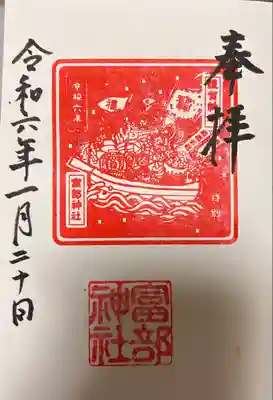 奉拝
令和六年
特別
富部神社
富部神社
令和六年一月二十日